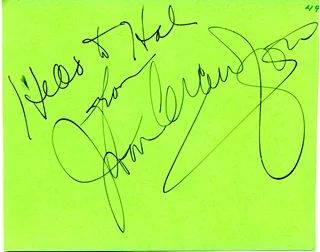 49
Hello to Hal
From
Joan Crawford